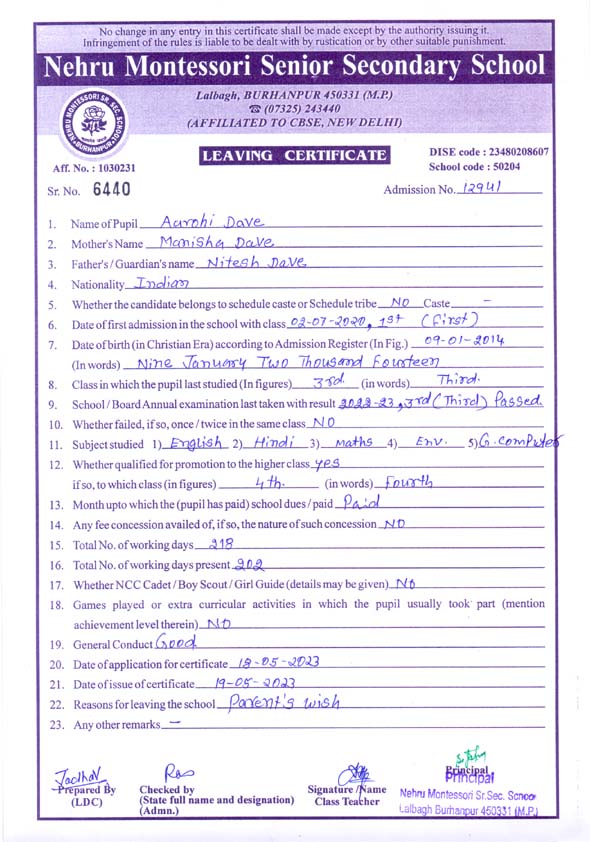 No change in any entry in this certificate shall be made except by the authority issuing it.
Infringement of the rules is liable to be dealt with by rustication or by other suitable punishment.
Nehru Montessori Senior Secondary School
Lalbagh, BURHANPUR 450331 (M.P.)
☎ (07325) 243440
(AFFILIATED TO CBSE, NEW DELHI)
NEHRU MONTESSORI SR. SEC. SCHOOL
BURHANPUR
LEAVING CERTIFICATE
DISE code : 23480208607
School code : 50204
Aff. No. : 1030231
Sr. No. 6440
Admission No. 12941
1. Name of Pupil Aarohi Dave
2. Mother's Name Manisha Dave
3. Father's / Guardian's name Nitesh Dave
4. Nationality Indian
5. Whether the candidate belongs to schedule caste or Schedule tribe NO Caste –
6. Date of first admission in the school with class 02-07-2020, 1st (First)
7. Date of birth (in Christian Era) according to Admission Register (In Fig.) 09-01-2014
(In words) Nine January Two Thousand Fourteen
8. Class in which the pupil last studied (In figures) 3rd. (in words) Third.
9. School / Board Annual examination last taken with result 2022-23, 3rd (Third) Passed.
10. Whether failed, if so, once / twice in the same class NO
11. Subject studied 1) English 2) Hindi 3) Maths 4) Env. 5) G.computer
12. Whether qualified for promotion to the higher class yes
if so, to which class (in figures) 4th. (in words) Fourth
13. Month upto which the (pupil has paid) school dues / paid Paid
14. Any fee concession availed of, if so, the nature of such concession NO
15. Total No. of working days 218
16. Total No. of working days present 202
17. Whether NCC Cadet / Boy Scout / Girl Guide (details may be given) No
18. Games played or extra curricular activities in which the pupil usually took part (mention
achievement level therein) NO
19. General Conduct Good
20. Date of application for certificate 18-05-2023
21. Date of issue of certificate 19-05-2023
22. Reasons for leaving the school Parent's wish
23. Any other remarks –
Jadhav
Prepared By
(LDC)
Rao
Checked by
(State full name and designation)
(Admn.)
Signature / Name
Class Teacher
Principal
Principal
Nehru Montessori Sr.Sec. School
Lalbagh Burhanpur 450331 (M.P.)